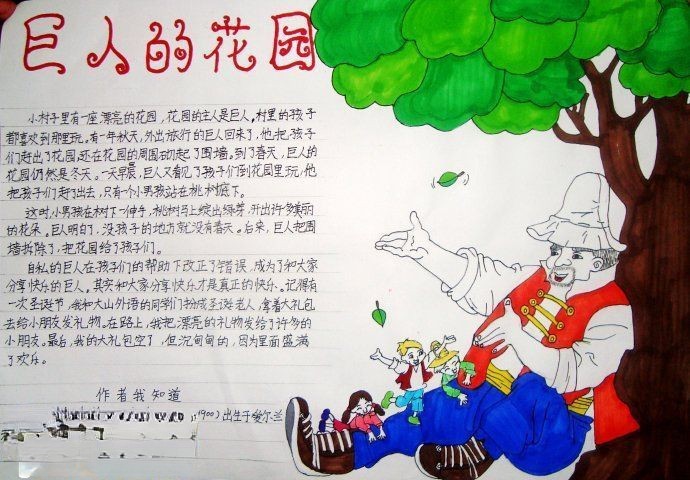 巨人的花园
小村子里有一座漂亮的花园，花园的主人是巨人。村里的孩子
都喜欢到那里玩。有一年秋天，外出旅行的巨人回来了，他把孩子
们赶出了花园，还在花园的周围砌起了围墙。到了春天，巨人的
花园仍然是冬天。一天早晨，巨人又看见了孩子们到花园里玩，他
把孩子们赶了出去，只有一个小男孩站在桃树底下。
这时，小男孩在树下一伸手，桃树马上绽出绿芽，开出许多美丽
的花朵。巨人明白了，没孩子的地方就没有春天。后来，巨人把围
墙拆除了，把花园给了孩子们。
自私的巨人在孩子们的帮助下改正了错误，成为了和大家
分享快乐的巨人。其实和大家分享快乐才是真正的快乐。记得有
一次圣诞节，我和大山外语的同学们扮成圣诞老人，拿着大礼包
去给小朋友发礼物。在路上，我把漂亮的礼物发给了许多的
小朋友。最后，我的大礼包空了，但沉甸甸的，因为里面盛满
了欢乐。
作者我知道
1900）出生于爱尔兰